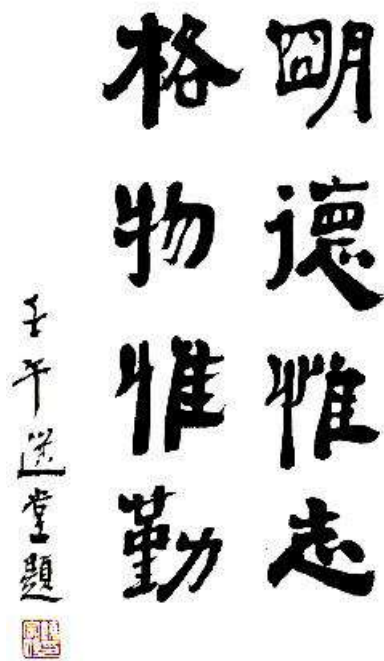 明德惟志
格物惟勤
壬午選堂題